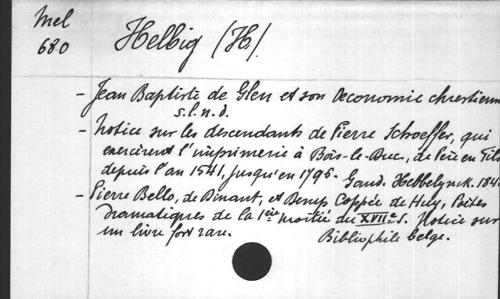 Mel
680
Helbig (H).
- Jean Baptiste de Glen et son Oeconomie chrestienne
s. l. n. d.
- Notice sur les descendants de Pierre Schoeffer, qui
exercèrent l'imprimerie à Bois-le-Duc, de Père en Fils
depuis l'an 1541, jusqu'en 1796. Gand. Hebbelynck. 184
- Pierre Bello, de Dinant, et Denis Coppée de Huy, Poètes
dramatiques de la 1ère moitié du XVIIe s. Notice sur
un livre fort rare. Bibliophile belge.